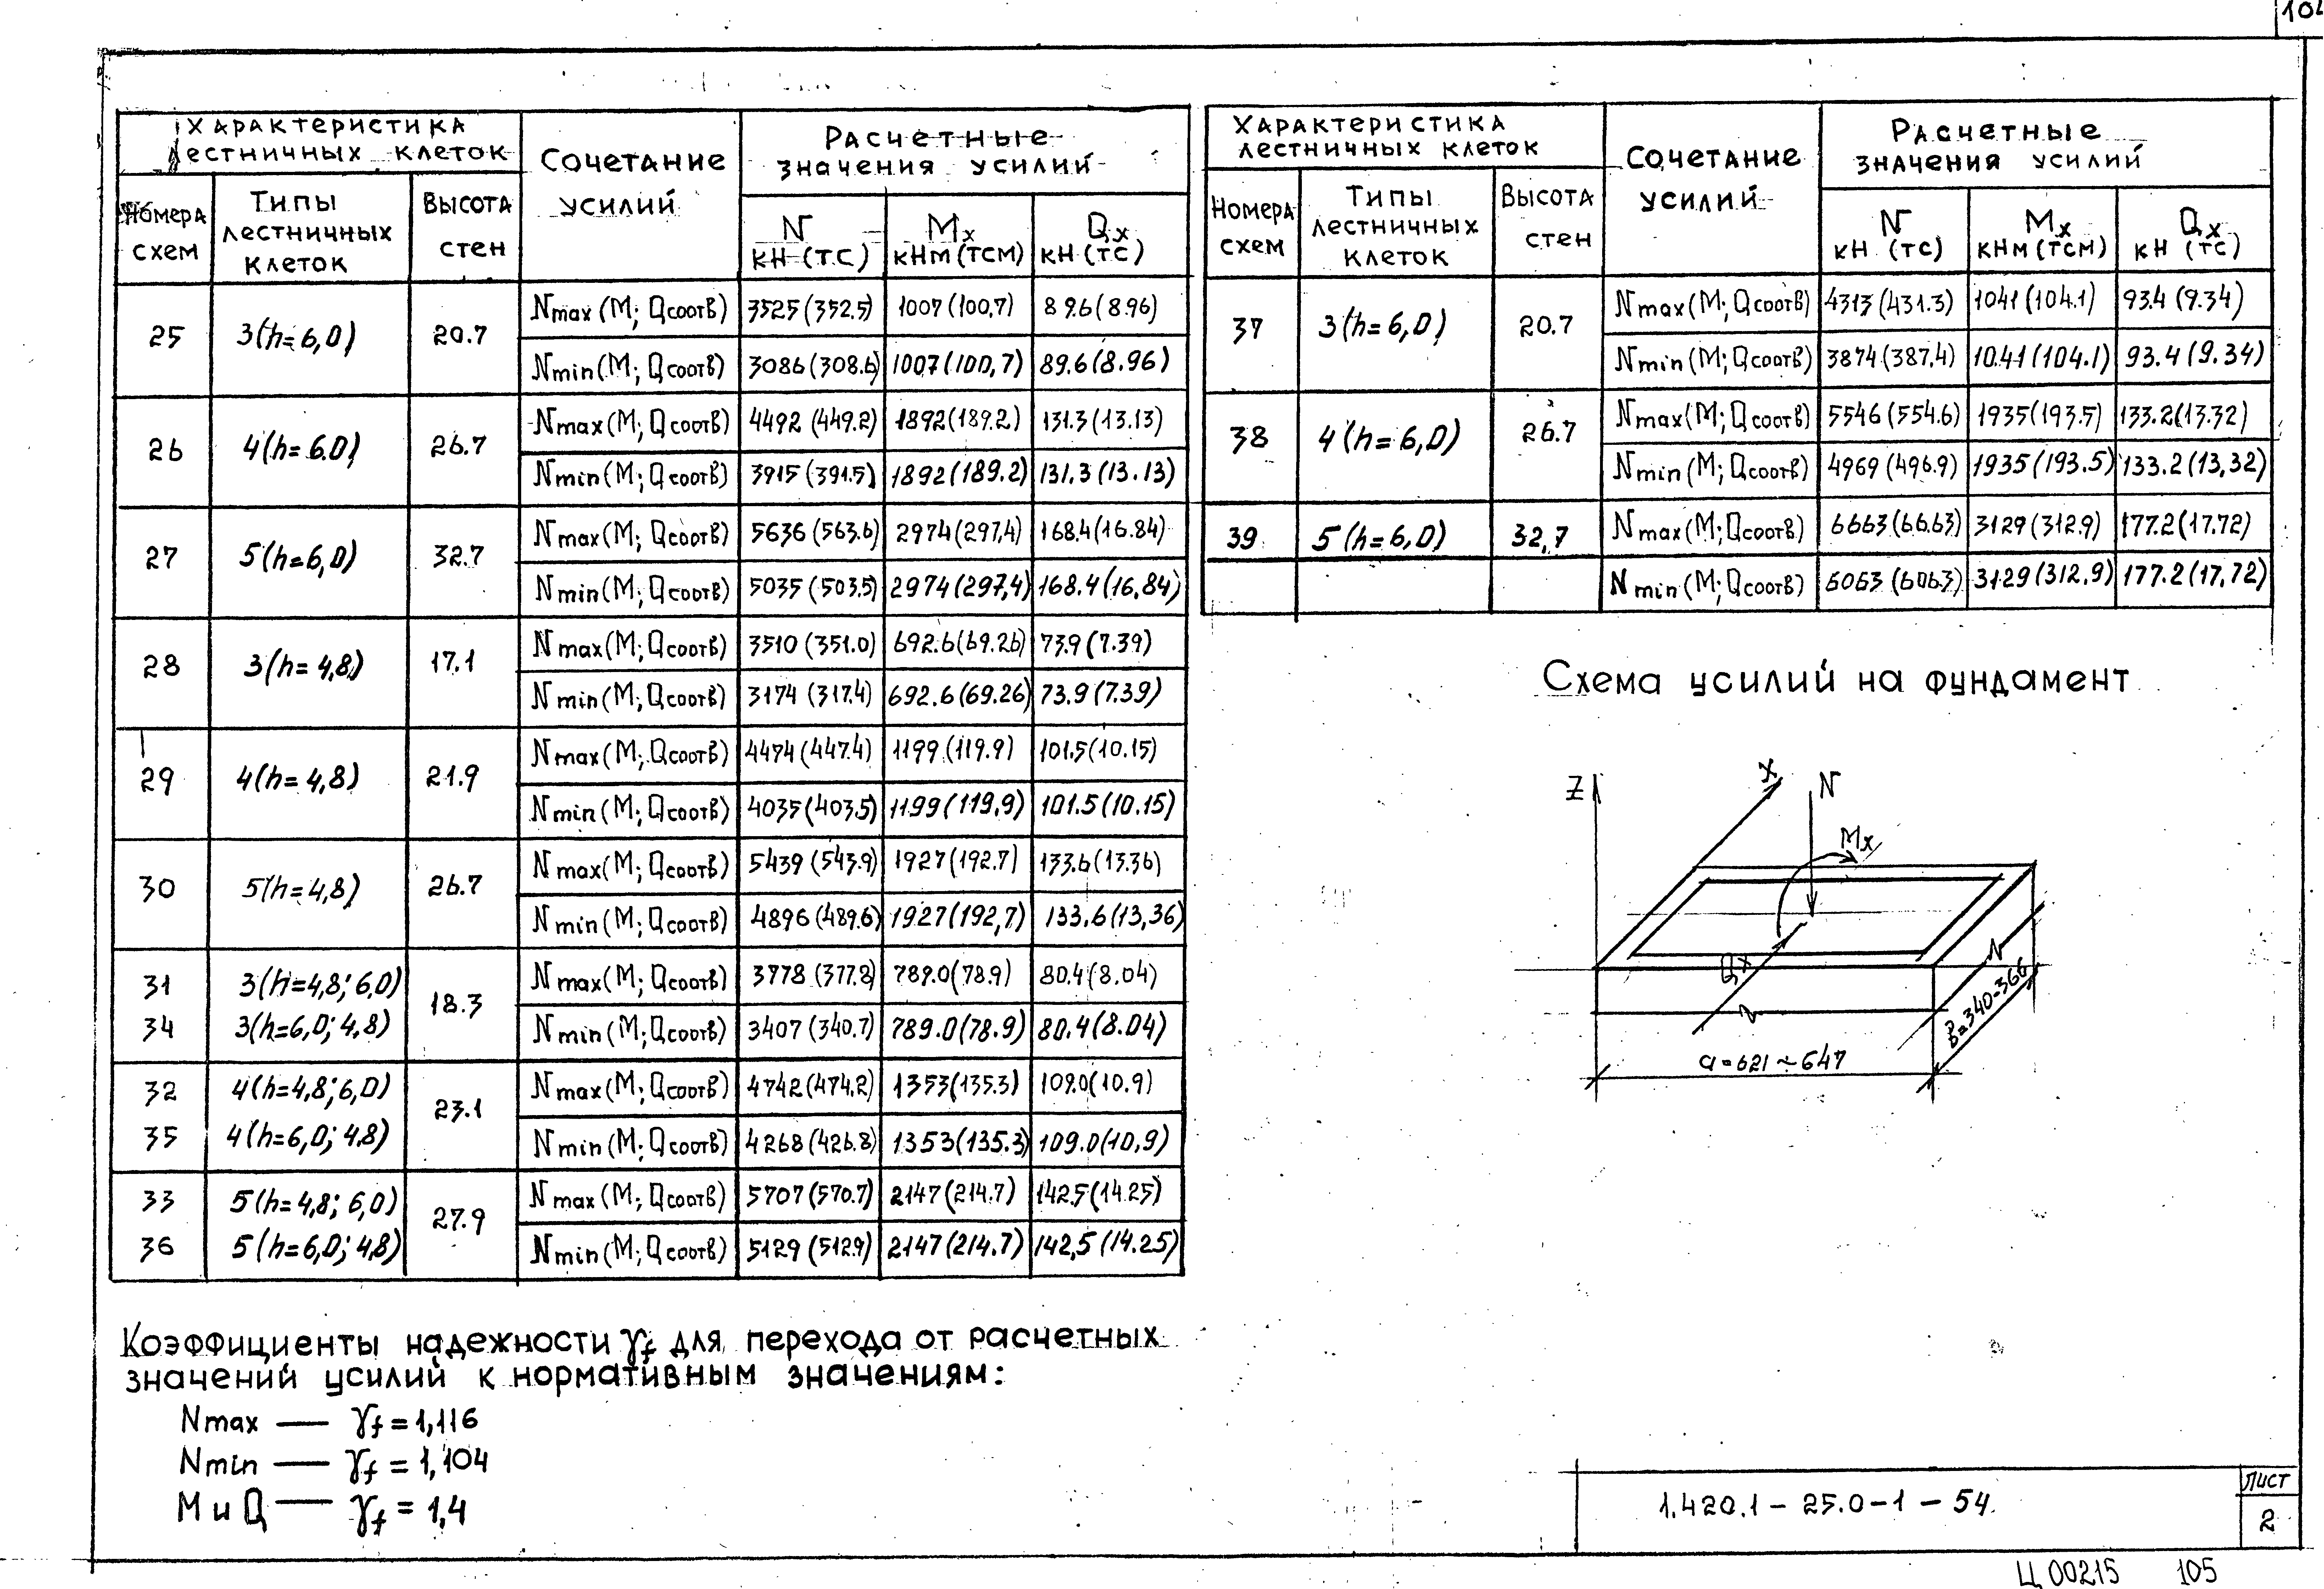 104
Характеристика
лестничных клеток
Сочетание
усилий
Расчетные
значения усилий
Номера
схем
Типы
лестничных
клеток
Высота
стен
N
кН (тс)
Mx
кНм (тсм)
Qx
кН (тс)
25 3(h=6,0) 20.7 Nmax (M; Qсоотв) 3525 (352.5) 1007 (100,7) 89.6 (8.96)
Nmin (M; Qсоотв) 3086 (308.6) 1007 (100,7) 89.6 (8.96)
26 4(h=6.0) 26.7 Nmax (M; Qсоотв) 4492 (449.2) 1892 (189.2) 131.3 (13.13)
Nmin (M; Qсоотв) 3915 (391.5) 1892 (189.2) 131.3 (13.13)
27 5(h=6,0) 32.7 Nmax (M; Qсоотв) 5636 (563.6) 2974 (297,4) 168.4 (16.84)
Nmin (M; Qсоотв) 5035 (503.5) 2974 (297,4) 168.4 (16,84)
28 3(h=4,8) 17.1 Nmax (M; Qсоотв) 3510 (351.0) 692.6 (69.26) 73.9 (7.39)
Nmin (M; Qсоотв) 3174 (317.4) 692.6 (69.26) 73.9 (7.39)
29 4(h=4,8) 21.9 Nmax (M; Qсоотв) 4474 (447.4) 1199 (119.9) 101.5 (10.15)
Nmin (M; Qсоотв) 4035 (403.5) 1199 (119,9) 101.5 (10.15)
30 5(h=4,8) 26.7 Nmax (M; Qсоотв) 5439 (543.9) 1927 (192.7) 133.6 (13.36)
Nmin (M; Qсоотв) 4896 (489.6) 1927 (192,7) 133.6 (13,36)
31 3(h=4,8; 6,0) 18.3 Nmax (M; Qсоотв) 3778 (377.8) 789.0 (78.9) 80.4 (8.04)
34 3(h=6,0; 4,8) Nmin (M; Qсоотв) 3407 (340.7) 789.0 (78.9) 80.4 (8.04)
32 4(h=4,8; 6,0) 23.1 Nmax (M; Qсоотв) 4742 (474,2) 1353 (135.3) 109.0 (10.9)
35 4(h=6,0; 4,8) Nmin (M; Qсоотв) 4268 (426.8) 1353 (135.3) 109.0 (10,9)
33 5(h=4,8; 6,0) 27.9 Nmax (M; Qсоотв) 5707 (570.7) 2147 (214.7) 142.5 (14.25)
36 5(h=6,0; 4,8) Nmin (M; Qсоотв) 5129 (512.9) 2147 (214.7) 142,5 (14.25)
Характеристика
лестничных клеток
Сочетание
усилий
Расчетные
значения усилий
Номера
схем
Типы
лестничных
клеток
Высота
стен
N
кН (тс)
Mx
кНм (тсм)
Qx
кН (тс)
37 3(h=6,0) 20.7 Nmax (M; Qсоотв) 4313 (431.3) 1041 (104.1) 93.4 (9.34)
Nmin (M; Qсоотв) 3874 (387,4) 1041 (104.1) 93.4 (9.34)
38 4(h=6,0) 26.7 Nmax (M; Qсоотв) 5546 (554.6) 1935 (193.5) 133.2 (13.32)
Nmin (M; Qсоотв) 4969 (496.9) 1935 (193.5) 133.2 (13,32)
39 5(h=6,0) 32,7 Nmax (M; Qсоотв) 6663 (66.63) 3129 (312.9) 177.2 (17.72)
Nmin (M; Qсоотв) 6063 (606.3) 3129 (312,9) 177.2 (17,72)
Схема усилий на фундамент
Z
X
N
Mx
Qx
a=621÷647
в=340÷366
Коэффициенты надежности γf для перехода от расчетных
значений усилий к нормативным значениям:
Nmax — γf = 1,116
Nmin — γf = 1,104
M и Q — γf = 1,4
1.420.1 – 25.0–1 – 54
Лист
2
Ц00215 105